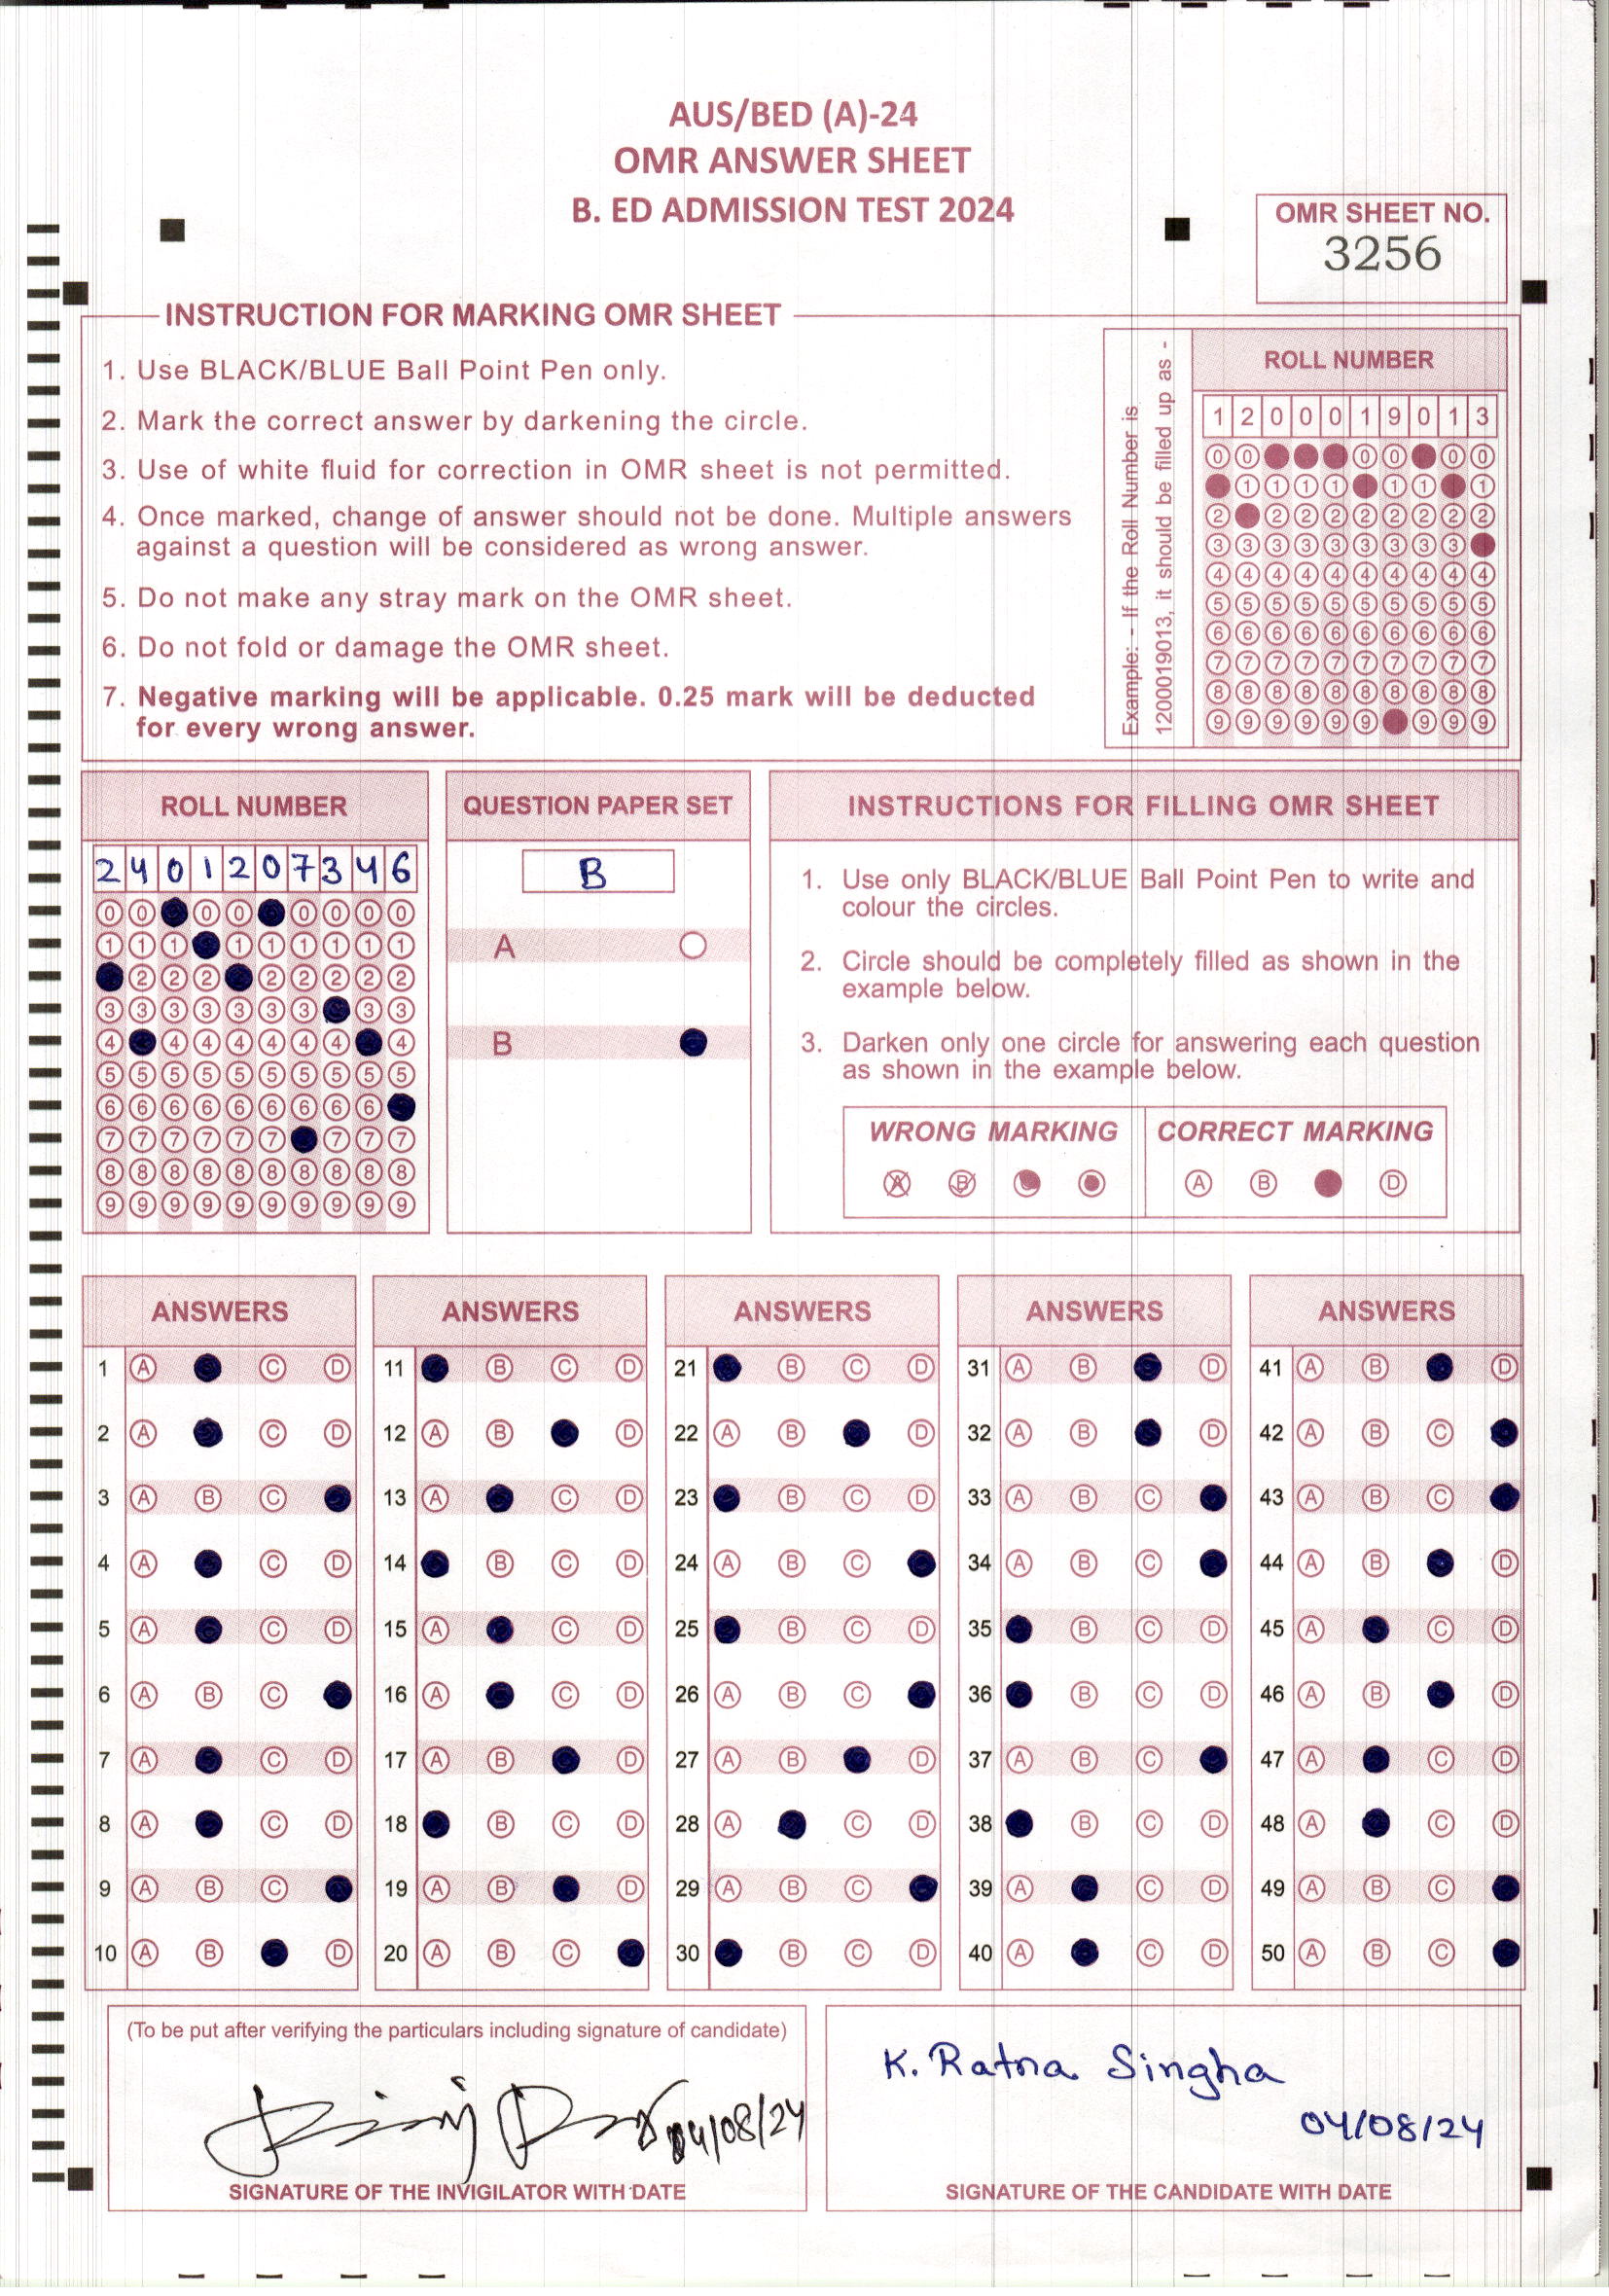 AUS/BED (A)-24
OMR ANSWER SHEET
B. ED ADMISSION TEST 2024
OMR SHEET NO.
3256
INSTRUCTION FOR MARKING OMR SHEET
1. Use BLACK/BLUE Ball Point Pen only.
2. Mark the correct answer by darkening the circle.
3. Use of white fluid for correction in OMR sheet is not permitted.
4. Once marked, change of answer should not be done. Multiple answers
against a question will be considered as wrong answer.
5. Do not make any stray mark on the OMR sheet.
6. Do not fold or damage the OMR sheet.
7. Negative marking will be applicable. 0.25 mark will be deducted
for every wrong answer.
Example: - If the Roll Number is
1200019013, it should be filled up as -
ROLL NUMBER
1 2 0 0 0 1 9 0 1 3
0 0 0 0 0 0
1 1 1 1 1 1 1
2 2 2 2 2 2 2 2 2
3 3 3 3 3 3 3 3 3
4 4 4 4 4 4 4 4 4 4
5 5 5 5 5 5 5 5 5 5
6 6 6 6 6 6 6 6 6 6
7 7 7 7 7 7 7 7 7 7
8 8 8 8 8 8 8 8 8 8
9 9 9 9 9 9 9 9 9
ROLL NUMBER
2 4 0 1 2 0 7 3 4 6
0 0 0 0 0 0 0 0
1 1 1 1 1 1 1 1 1
2 2 2 2 2 2 2 2
3 3 3 3 3 3 3 3 3
4 4 4 4 4 4 4 4
5 5 5 5 5 5 5 5 5 5
6 6 6 6 6 6 6 6 6
7 7 7 7 7 7 7 7 7
8 8 8 8 8 8 8 8 8 8
9 9 9 9 9 9 9 9 9 9
QUESTION PAPER SET
B
A
B
INSTRUCTIONS FOR FILLING OMR SHEET
1. Use only BLACK/BLUE Ball Point Pen to write and
colour the circles.
2. Circle should be completely filled as shown in the
example below.
3. Darken only one circle for answering each question
as shown in the example below.
WRONG MARKING
A B
CORRECT MARKING
A B D
ANSWERS
1 A C D
2 A C D
3 A B C
4 A C D
5 A C D
6 A B C
7 A C D
8 A C D
9 A B C
10 A B D
ANSWERS
11 B C D
12 A B D
13 A C D
14 B C D
15 A C D
16 A C D
17 A B D
18 B C D
19 A B D
20 A B C
ANSWERS
21 B C D
22 A B D
23 B C D
24 A B C
25 B C D
26 A B C
27 A B D
28 A C D
29 A B C
30 B C D
ANSWERS
31 A B D
32 A B D
33 A B C
34 A B C
35 B C D
36 B C D
37 A B C
38 B C D
39 A C D
40 A C D
ANSWERS
41 A B D
42 A B C
43 A B C
44 A B D
45 A C D
46 A B D
47 A C D
48 A C D
49 A B C
50 A B C
(To be put after verifying the particulars including signature of candidate)
04/08/24
SIGNATURE OF THE INVIGILATOR WITH DATE
K. Ratna Singha
04/08/24
SIGNATURE OF THE CANDIDATE WITH DATE